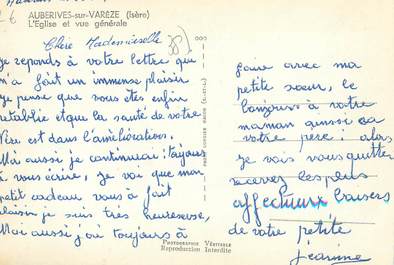 6 AUBERIVES-sur-VARÈZE (Isère)
L'Eglise et vue générale
Chère Mademoiselle
38
Je reponds à votre lettre qui
m'a fait un immense plaisir
Je pense que vous êtes enfin
retablie et que la santé de votre
Père est dans l'amélioration.
Moi aussi je continuai toujours
à vous écrire, je voi que mon
petit cadeau vous à fait
plaisir je suis très heureuse,
Moi aussi j'ai toujours à
PHOTOGRAPHIE VÉRITABLE
Reproduction Interdite
faire avec ma
petite sœur, le
bonjour à votre
maman ainssi ca
votre père; alors
je vais vous quitter
recevez les plus
affectueux baisers
de votre petite
Jeanine